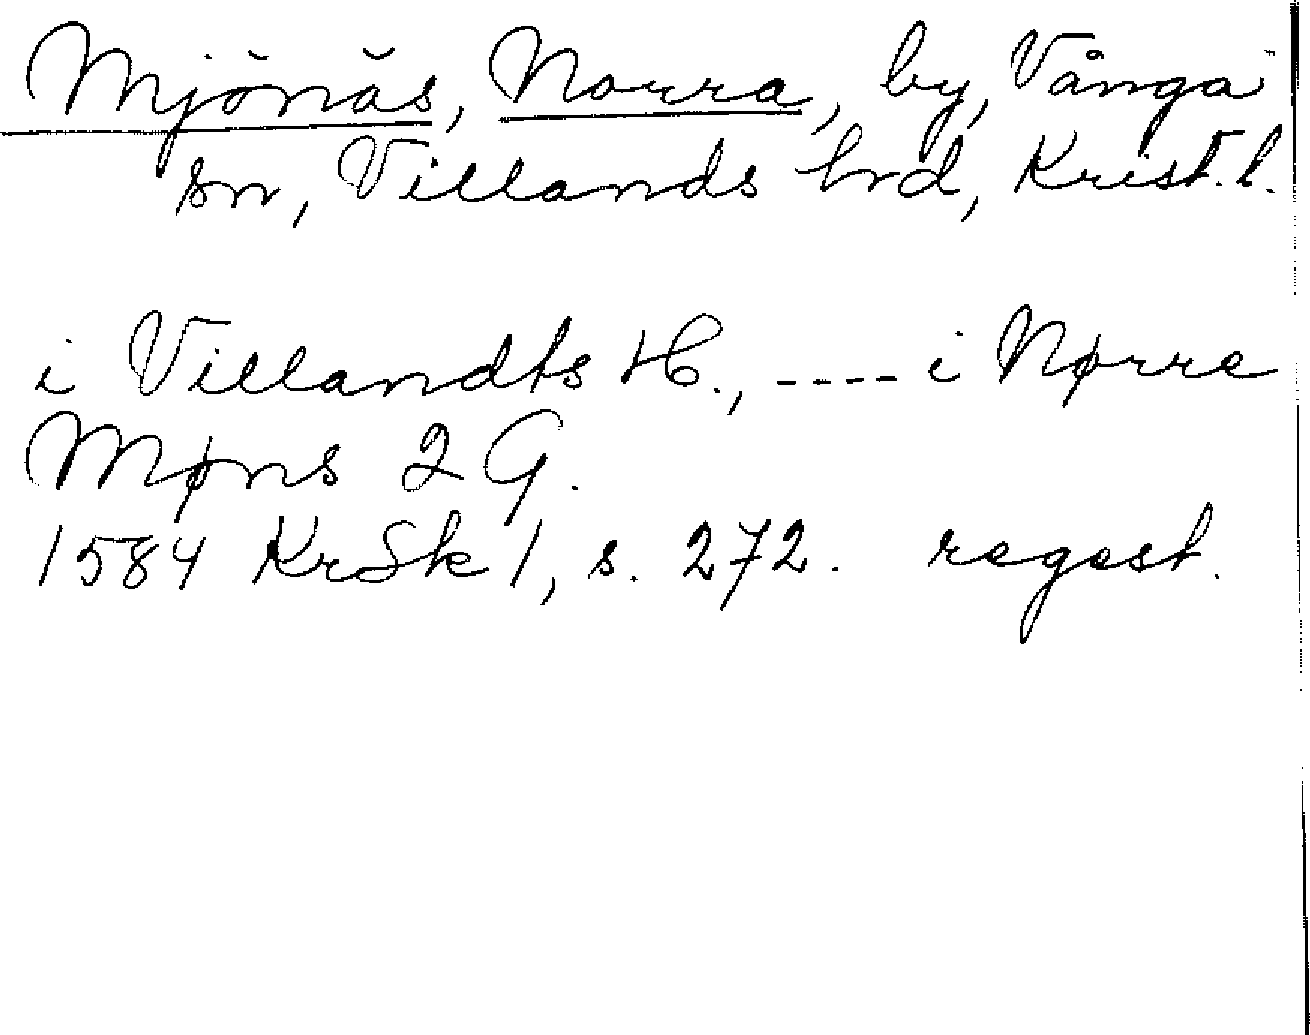 Mjönäs, Norra, by, Vånga
sn, Villands hrd, Krist. l.
i Villandts H., ---- i Nørre
Møns 2 G.
1584 KrSk 1, s. 272. regest.